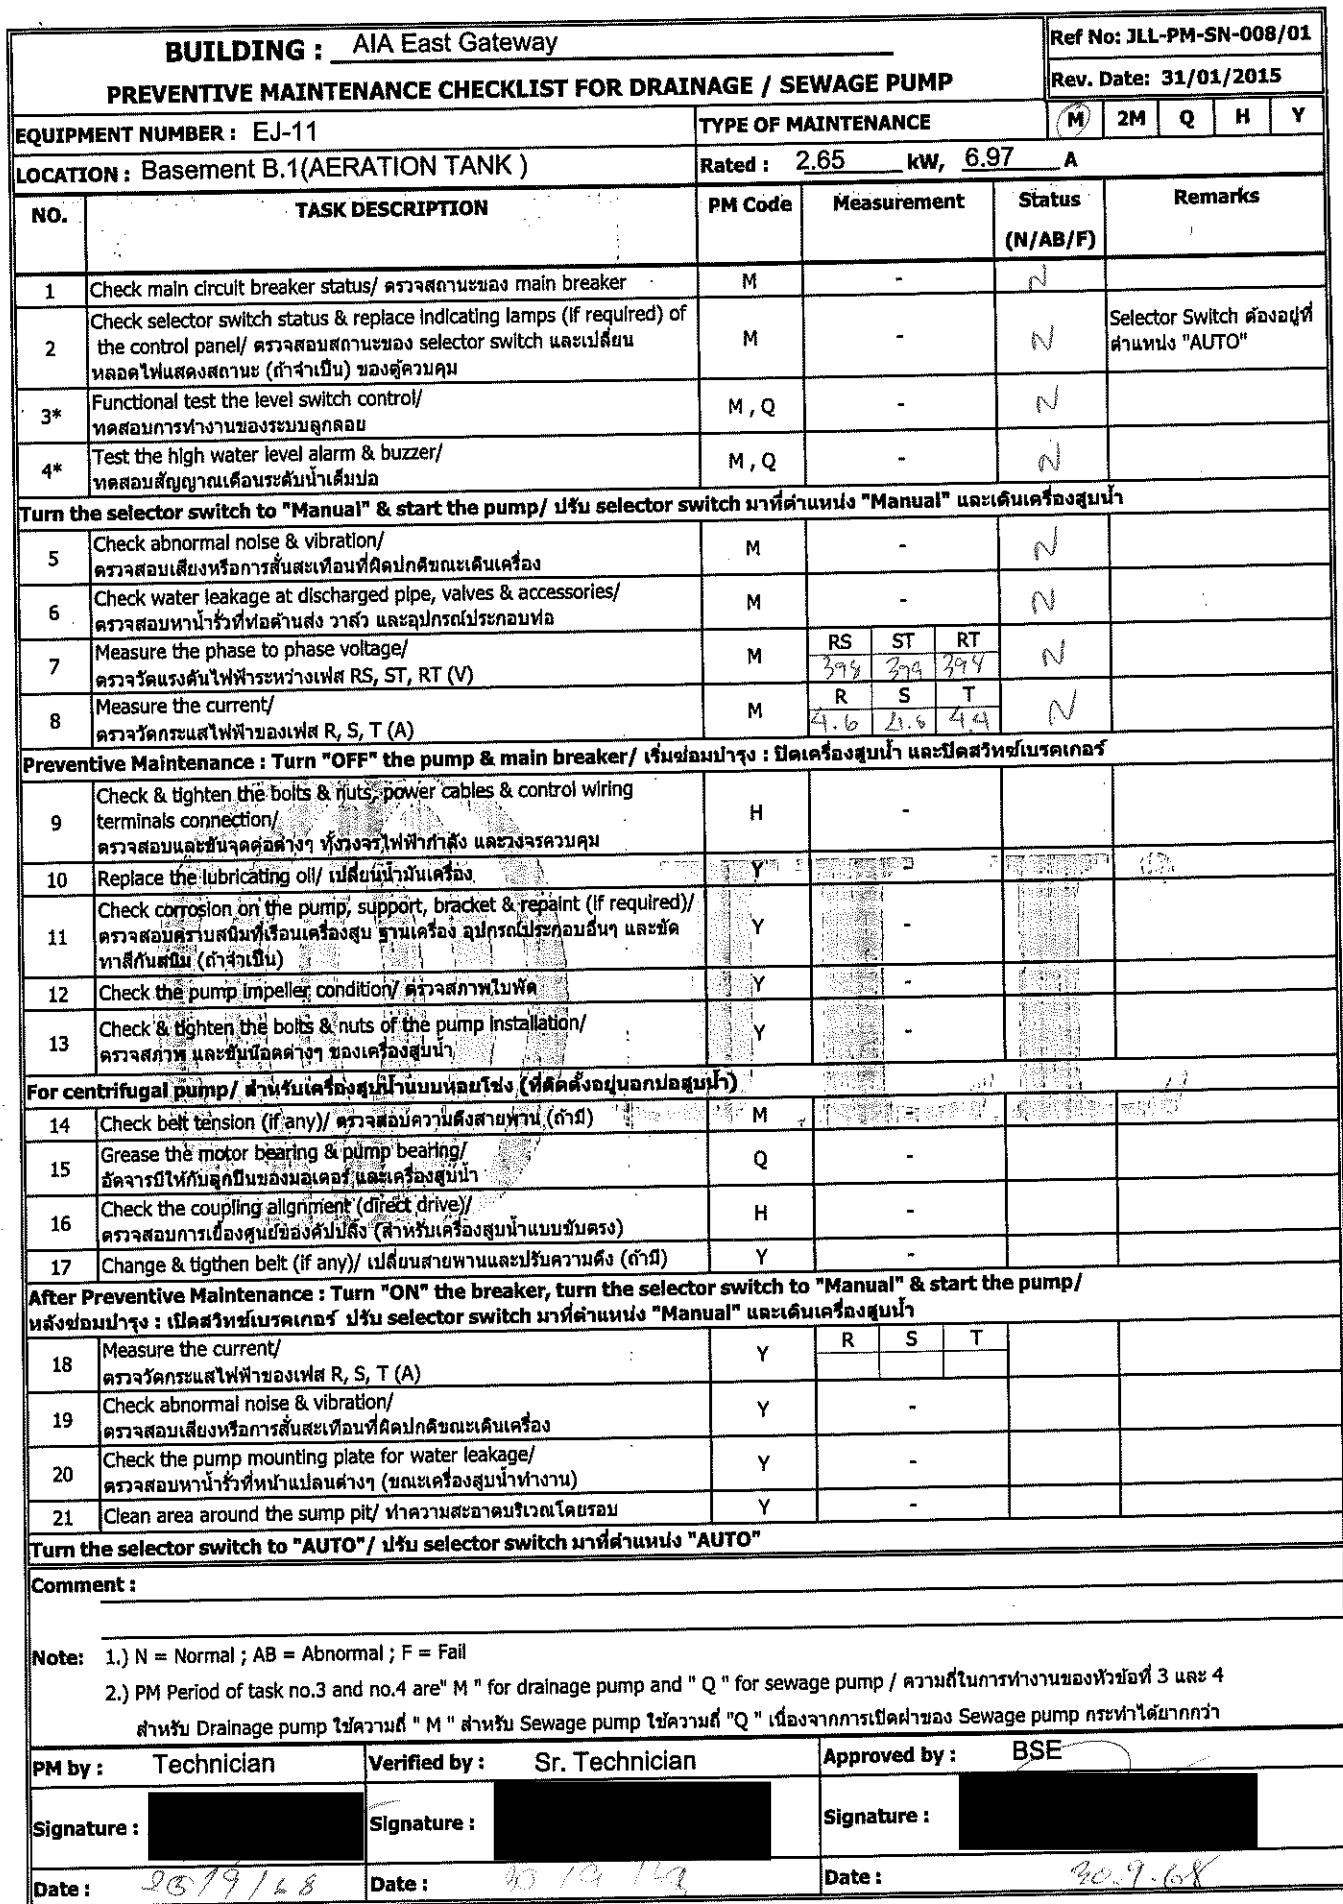 BUILDING : AIA East Gateway
Ref No: JLL-PM-SN-008/01
PREVENTIVE MAINTENANCE CHECKLIST FOR DRAINAGE / SEWAGE PUMP
Rev. Date: 31/01/2015
EQUIPMENT NUMBER : EJ-11
TYPE OF MAINTENANCE M 2M Q H Y
LOCATION : Basement B.1(AERATION TANK )
Rated : 2.65 kW, 6.97 A
NO. TASK DESCRIPTION PM Code Measurement Status (N/AB/F) Remarks
1 Check main circuit breaker status/ ตรวจสถานะของ main breaker M - N
2 Check selector switch status & replace indicating lamps (if required) of
the control panel/ ตรวจสอบสถานะของ selector switch และเปลี่ยน M - N
หลอดไฟแสดงสถานะ (ถ้าจำเป็น) ของตู้ควบคุม
Selector Switch ต้องอยู่ที่
ตำแหน่ง "AUTO"
3* Functional test the level switch control/ M , Q - N
ทดสอบการทำงานของระบบลูกลอย
4* Test the high water level alarm & buzzer/ M , Q - N
ทดสอบสัญญาณเตือนระดับน้ำเต็มบ่อ
Turn the selector switch to "Manual" & start the pump/ ปรับ selector switch มาที่ตำแหน่ง "Manual" และเดินเครื่องสูบน้ำ
5 Check abnormal noise & vibration/ M - N
ตรวจสอบเสียงหรือการสั่นสะเทือนที่ผิดปกติขณะเดินเครื่อง
6 Check water leakage at discharged pipe, valves & accessories/ M - N
ตรวจสอบหาน้ำรั่วที่ท่อด้านส่ง วาล์ว และอุปกรณ์ประกอบท่อ
7 Measure the phase to phase voltage/ M RS ST RT N
ตรวจวัดแรงดันไฟฟ้าระหว่างเฟส RS, ST, RT (V) 398 399 398
8 Measure the current/ M R S T N
ตรวจวัดกระแสไฟฟ้าของเฟส R, S, T (A) 4.6 4.6 4.4
Preventive Maintenance : Turn "OFF" the pump & main breaker/ เริ่มซ่อมบำรุง : ปิดเครื่องสูบน้ำ และปิดสวิทช์เบรคเกอร์
9 Check & tighten the bolts & nuts, power cables & control wiring
terminals connection/ H -
ตรวจสอบและขันจุดต่อต่างๆ ทั้งวงจรไฟฟ้ากำลัง และวงจรควบคุม
10 Replace the lubricating oil/ เปลี่ยนน้ำมันเครื่อง Y -
11 Check corrosion on the pump, support, bracket & repaint (if required)/
ตรวจสอบคราบสนิมที่เรือนเครื่องสูบ ฐานเครื่อง อุปกรณ์ประกอบอื่นๆ และขัด Y -
ทาสีกันสนิม (ถ้าจำเป็น)
12 Check the pump impeller condition/ ตรวจสภาพใบพัด Y -
13 Check & tighten the bolts & nuts of the pump installation/ Y -
ตรวจสภาพ และขันน๊อตต่างๆ ของเครื่องสูบน้ำ
For centrifugal pump/ สำหรับเครื่องสูบน้ำแบบหอยโข่ง (ที่ติดตั้งอยู่นอกบ่อสูบน้ำ)
14 Check belt tension (if any)/ ตรวจสอบความตึงสายพาน (ถ้ามี) M -
15 Grease the motor bearing & pump bearing/ Q -
อัดจารบีให้กับลูกปืนของมอเตอร์ และเครื่องสูบน้ำ
16 Check the coupling alignment (direct drive)/ H -
ตรวจสอบการเยื้องศูนย์ของคัปปลิ้ง (สำหรับเครื่องสูบน้ำแบบขับตรง)
17 Change & tigthen belt (if any)/ เปลี่ยนสายพานและปรับความตึง (ถ้ามี) Y -
After Preventive Maintenance : Turn "ON" the breaker, turn the selector switch to "Manual" & start the pump/
หลังซ่อมบำรุง : เปิดสวิทช์เบรคเกอร์ ปรับ selector switch มาที่ตำแหน่ง "Manual" และเดินเครื่องสูบน้ำ
18 Measure the current/ Y R S T
ตรวจวัดกระแสไฟฟ้าของเฟส R, S, T (A)
19 Check abnormal noise & vibration/ Y -
ตรวจสอบเสียงหรือการสั่นสะเทือนที่ผิดปกติขณะเดินเครื่อง
20 Check the pump mounting plate for water leakage/ Y -
ตรวจสอบหาน้ำรั่วที่หน้าแปลนต่างๆ (ขณะเครื่องสูบน้ำทำงาน)
21 Clean area around the sump pit/ ทำความสะอาดบริเวณโดยรอบ Y -
Turn the selector switch to "AUTO"/ ปรับ selector switch มาที่ตำแหน่ง "AUTO"
Comment :
Note: 1.) N = Normal ; AB = Abnormal ; F = Fail
2.) PM Period of task no.3 and no.4 are" M " for drainage pump and " Q " for sewage pump / ความถี่ในการทำงานของหัวข้อที่ 3 และ 4
สำหรับ Drainage pump ใช้ความถี่ " M " สำหรับ Sewage pump ใช้ความถี่ "Q " เนื่องจากการเปิดฝาของ Sewage pump กระทำได้ยากกว่า
PM by : Technician Verified by : Sr. Technician Approved by : BSE
Signature : Signature : Signature :
Date : Date : Date : 30.9.68